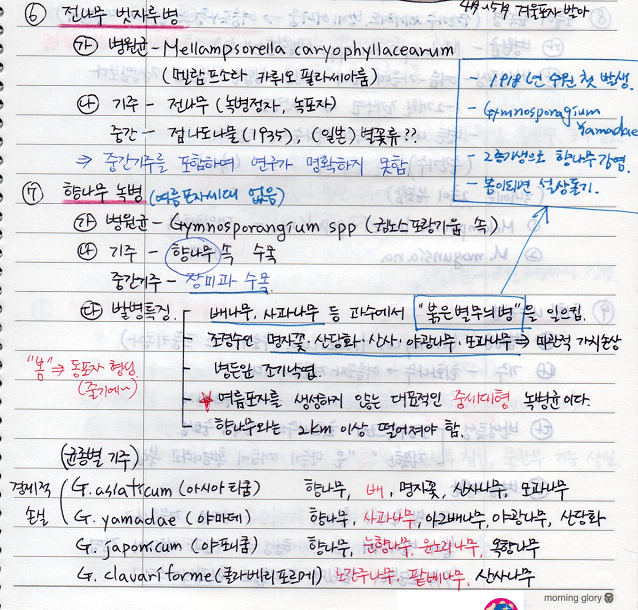 ⑥ 전나무 빗자루병
4月~5月 겨울포자 발아
㉮ 병원균 - Mellampsorella caryophyllacearum
(멜람프소라 카뤼오 필라세아룸)
㉯ 기주 - 전나무 (녹병정자, 녹포자)
중간 - 점나도나물(1935), (일본) 별꽃류??
⇒ 중간기주를 포함하여 연구가 명확하지 못함.
- 1918년 수원 첫 발생.
- Gymnosporagium
Yamadae
- 2종기생으로 향나무 감염.
- 봄이되면 석상돌기.
⑦ 향나무 녹병 (여름포자세대 없음)
㉮ 병원균 - Gymnosporangium spp (김노스포랑기움 속)
㉯ 기주 - 향나무 속 수목
중간기주 - 장미과 수목
㉰ 발병특징 - 배나무, 사과나무 등 과수에서 "붉은별무늬병"을 일으킴.
- 조경수인 명자꽃·산당화·산사·야광나무·모과나무 ⇒ 미관적 가치손상
- 병든잎 조기낙엽.
"봄" ⇒ 동포자 형성
(줄기에~)
- ★ 여름포자를 생성하지 않는 대표적인 중세대형 녹병균이다.
- 향나무와는 2km 이상 떨어져야 함.
(균종별 기주)
경제적
손실
G. asiaticum (아시아티쿰) 향나무, 배, 명자꽃, 산사나무, 모과나무
G. yamadae (야마데) 향나무, 사과나무, 아그배나무, 야광나무, 산당화
G. japonicum (야포니쿰) 향나무, 눈향나무, 윤노리나무, 옥향나무
G. clavariforme (클라베리포르메) 노간주나무, 팥배나무, 산사나무
morning glory